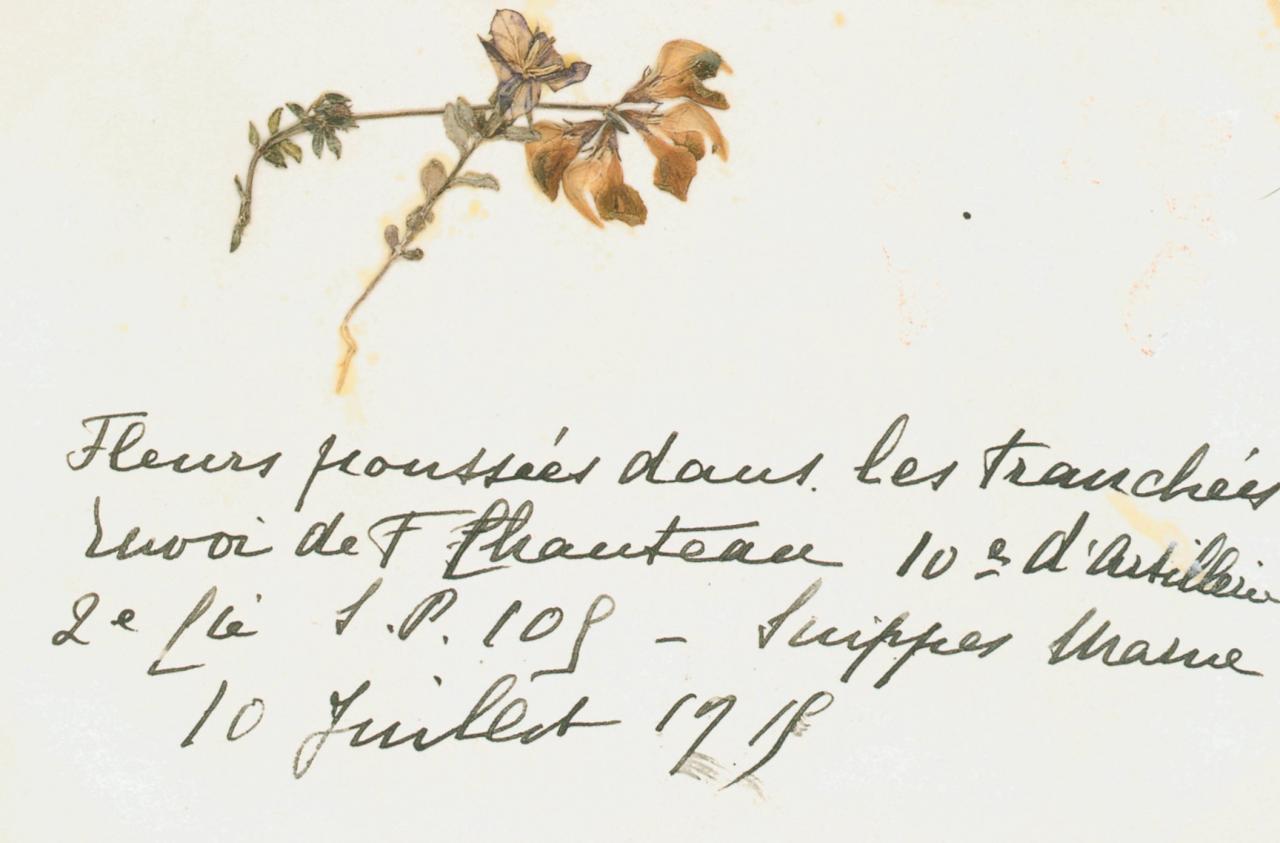 Fleurs poussées dans les tranchées
Envoi de F Chanteau 10e d'Artillerie
2e Cie S.P. 105 - Suippes Marne
10 Juillet 1915